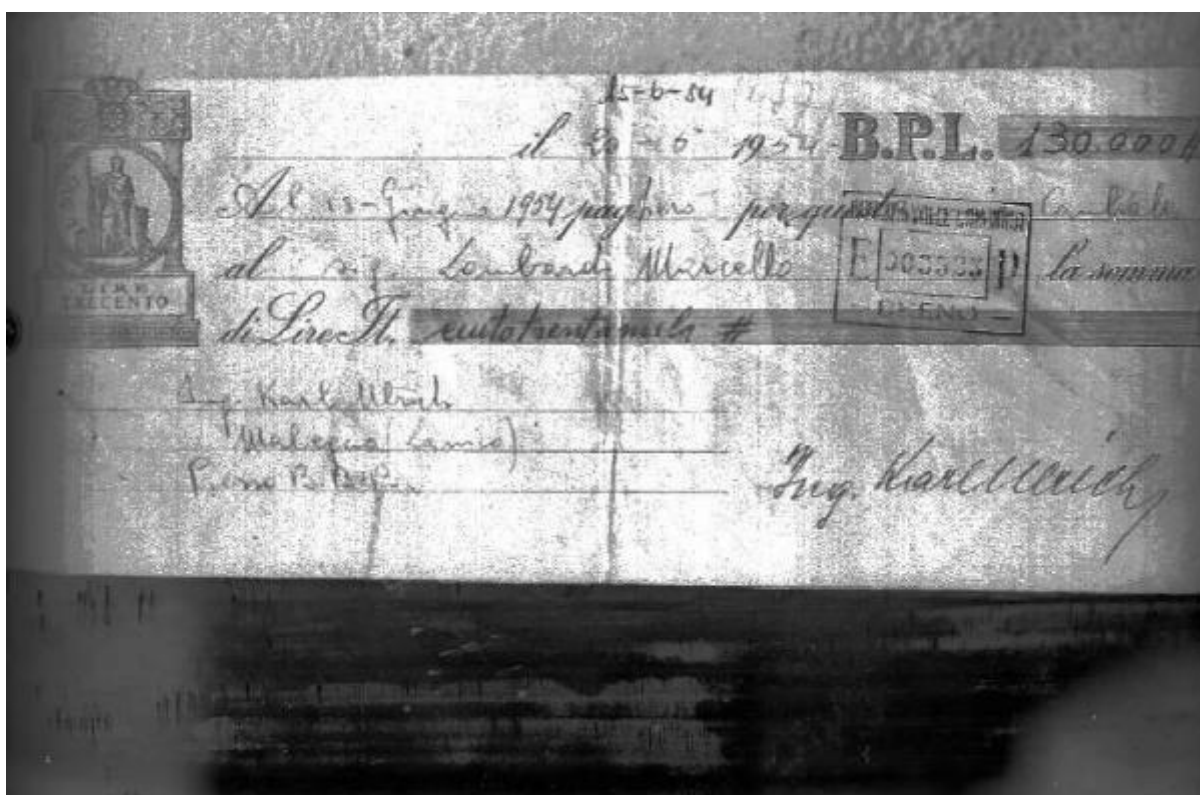 15-6-54
il 20 - 5 1954 - B.P.L. 130.000
Al 15 - Giugno 1954 pagherò per questa Cambiale
al sig. Lombardi Marcello E P la somma
LIRE
TRECENTO
BRENO
di Lire It. centotrentamila #
Ing. Karl Ulrich
Malegno
Ing. Karl Ulrich